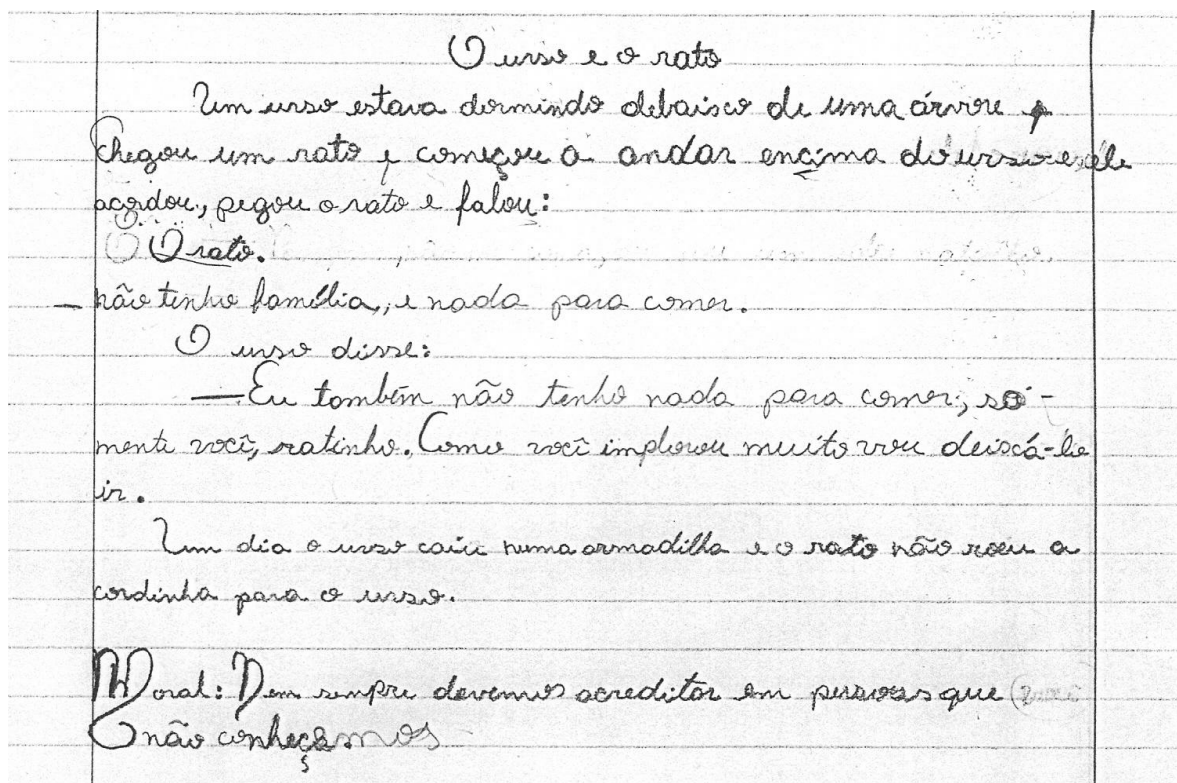 O urso e o rato
Um urso estava dormindo debaisco de uma árvore
chegou um rato e começou a andar encima do urso e ele
acordou, pegou o rato e falou:
O rato.
— não tenho família, e nada para comer.
O urso disse:
— Eu também não tenho nada para comer, so-
mente você, ratinho. Como você implorou muito vou deiscá-lo
ir.
Um dia o urso caiu numa armadilha e o rato não roeu a
cordinha para o urso.
Moral: Nem sempre devemos acreditar em pessoas que
não conheçamos